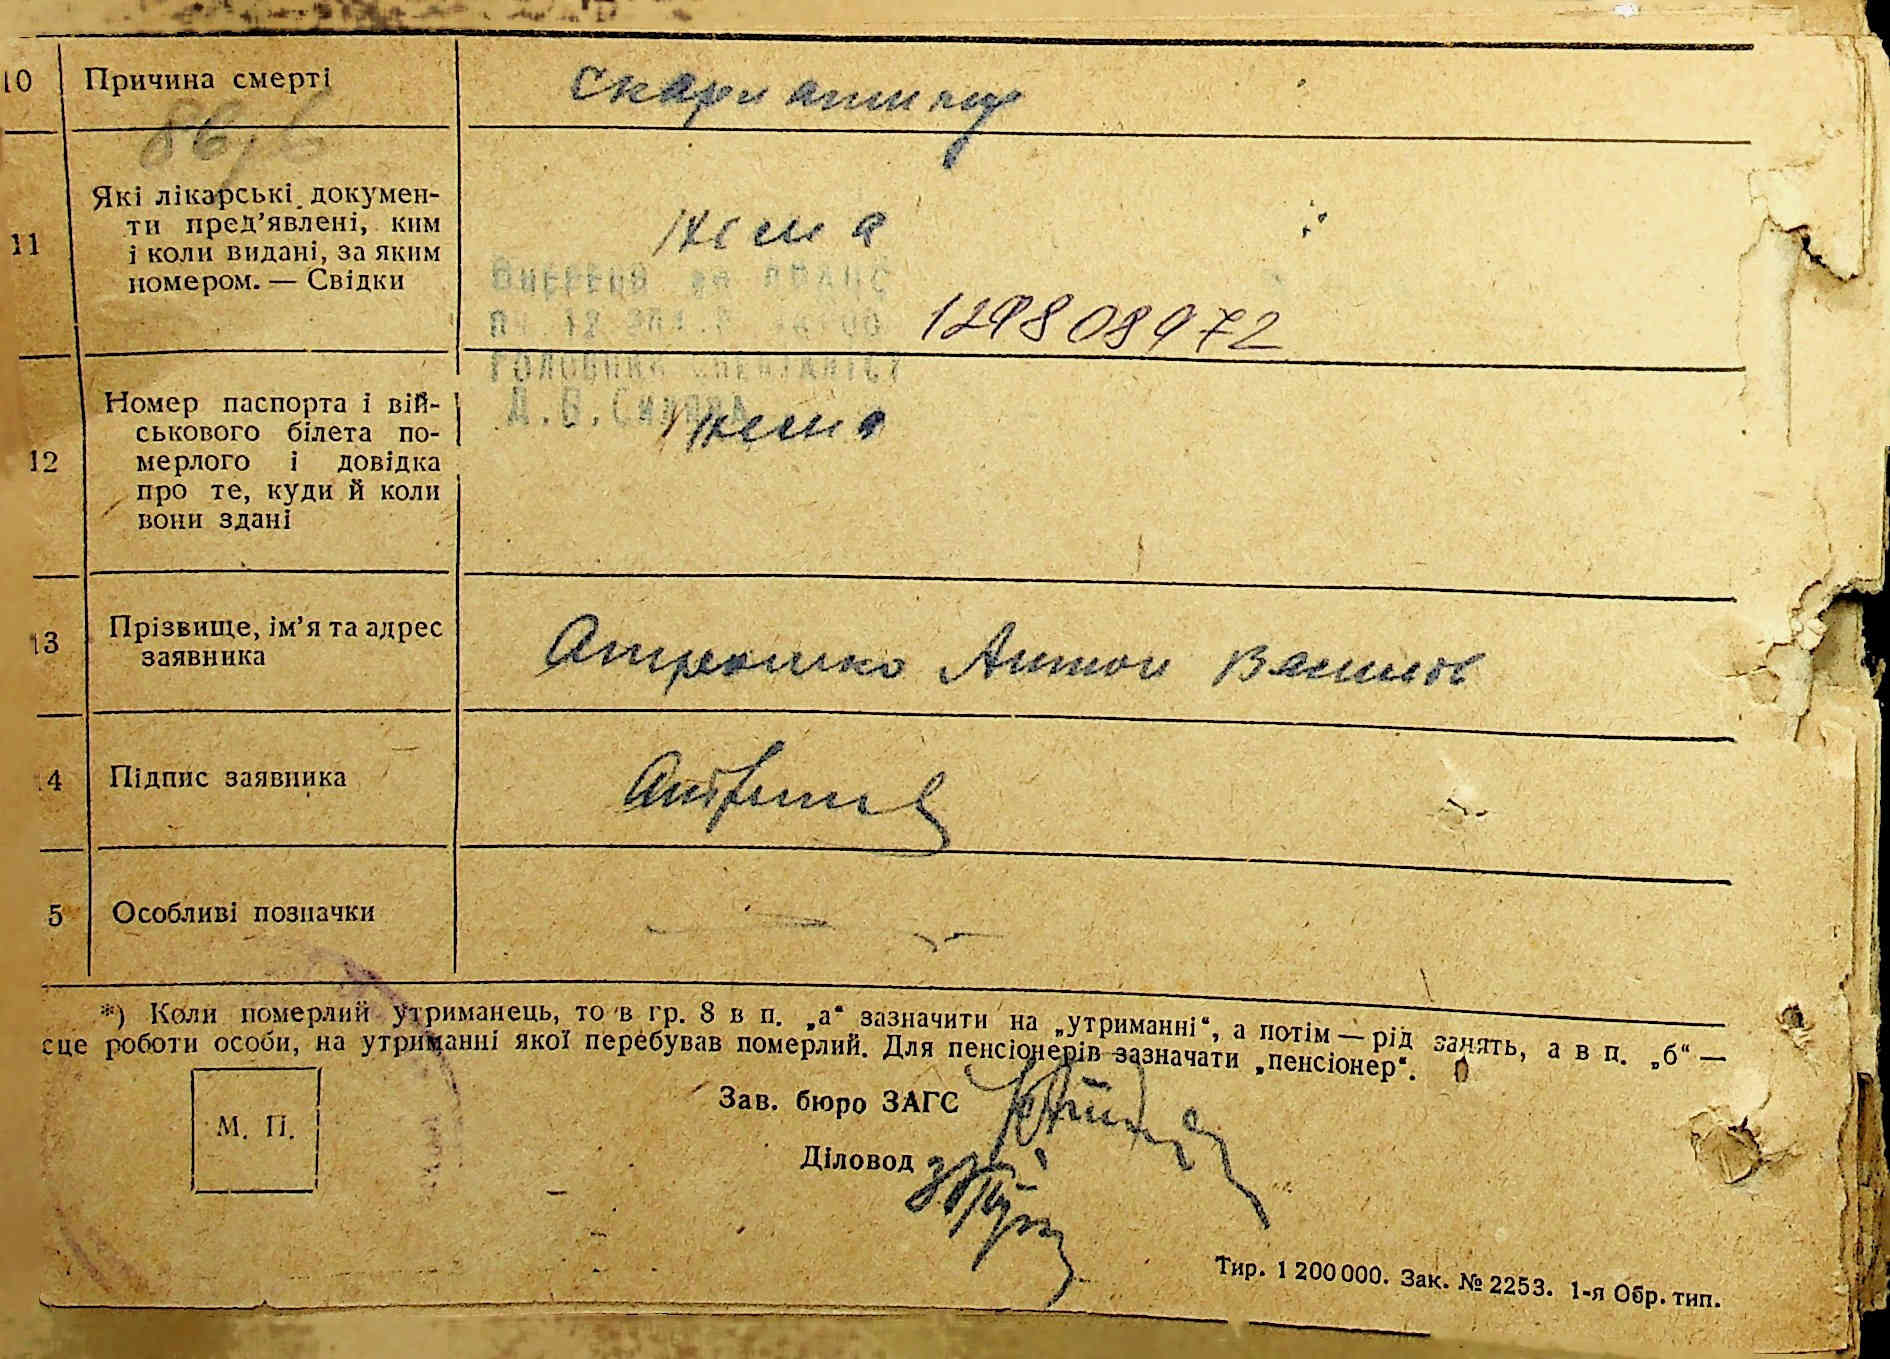 10 Причина смерті скарлатина
86/6
11 Які лікарські документи пред'явлені, ким
і коли видані, за яким
номером. — Свідки
нема
129808972
Номер паспорта і вій-
ськового білета по-
12 мерлого і довідка
про те, куди й коли
вони здані
нема
13 Прізвище, ім'я та адрес
заявника
Антон
4 Підпис заявника
5 Особливі позначки
*) Коли померлий утриманець, то в гр. 8 в п. „а“ зазначити на „утриманні“, а потім — рід занять, а в п. „б“ —
сце роботи особи, на утриманні якої перебував померлий. Для пенсіонерів зазначати „пенсіонер“.
М. П.
Зав. бюро ЗАГС
Діловод
Тир. 1 200 000. Зак. № 2253. 1-я Обр. тип.